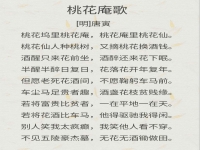 桃花庵歌
[明]唐寅
桃花坞里桃花庵，桃花庵里桃花仙。
桃花仙人种桃树，又摘桃花换酒钱。
酒醒只来花前坐，酒醉还来花下眠。
半醒半醉日复日，花落花开年复年。
但愿老死花酒间，不愿鞠躬车马前。
车尘马足贵者趣，酒盏花枝贫贱缘。
若将富贵比贫者，一在平地一在天。
若将花酒比车马，他得驱驰我得闲。
别人笑我太疯癫，我笑他人看不穿。
不见五陵豪杰墓，无花无酒锄做田。